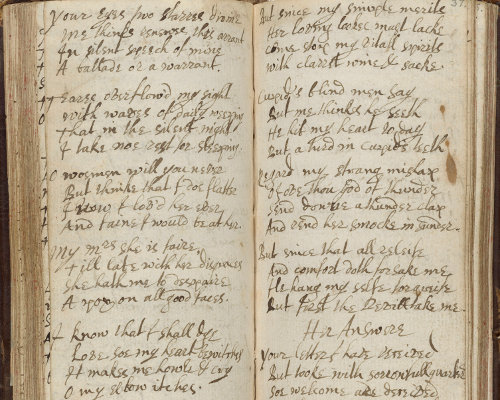 your eyes two starres divine
Me thinks
In silent speech of mine
A ballade or a warrant.
Teares overflowd my sight
with waves of daily weeping
That in the silent night
I take noe rest for sleeping.
O woemen will you never
But thinke that I doe flatter
I vow I lov'd her ever
And faine I would be at her.
My Mrs she is faire
Till late with her disgraces
she hath me to despaire
A pox on all good faces.
I know that I shall dye
Love soe my heart bewitches
It makes me howle & cry
O my elbow itches.
37
But since my simple merits
Her loving lookes must lacke
come stop my vitall spirits
with clarett wine & sacke.
Cupid's blind men say
But me thinks he seeth
He hit my heart to day
But a turd in Cupids teeth
regard my strang mishap
Jove thou God of thunder
send downe a thunder clap
And rend her smocke in sunder.
But since that all releife
And comfort doth forsake me
Ile hang my selfe for greife
But first the Devill take me.
Her Answere
your letters have received
But looke with scornfull
Soe welcome